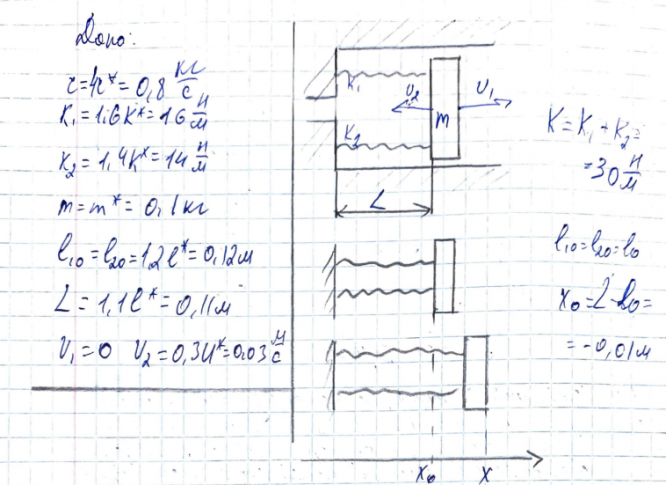 Дано:
r=4r*=0,8 кг/с
K₁=1.6K*=16 н/м
K₂=1,4K*=14 н/м
m=m*=0,1кг
l₁₀=l₂₀=1,2l*=0,12м
L=1,1l*=0,11м
U₁=0 U₂=0,3U*=0.03 м/с
K₁
K₂
U₂
m
U₁
L
x₀
x
K=K₁+K₂=
=30 н/м
l₁₀=l₂₀=l₀
x₀=L-l₀=
=-0,01м